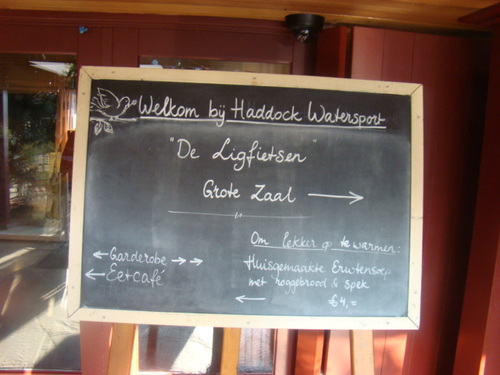 Welkom bij Haddock Watersport
"De Ligfietsen"
Grote Zaal →
Om lekker op te warmen:
← Garderobe → →
Huisgemaakte Erwtensoep
← Eetcafé
met roggebrood & spek
← €4,=